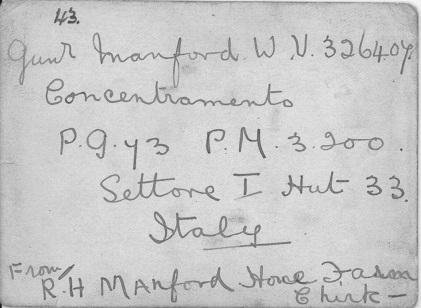 43.
Gunr Manford W.V. 326407.
Concentramento
P.G. 73 P.M. 3.200.
Settore I Hut 33.
Italy
From/
R.H Manford Home Farm
Chirk —